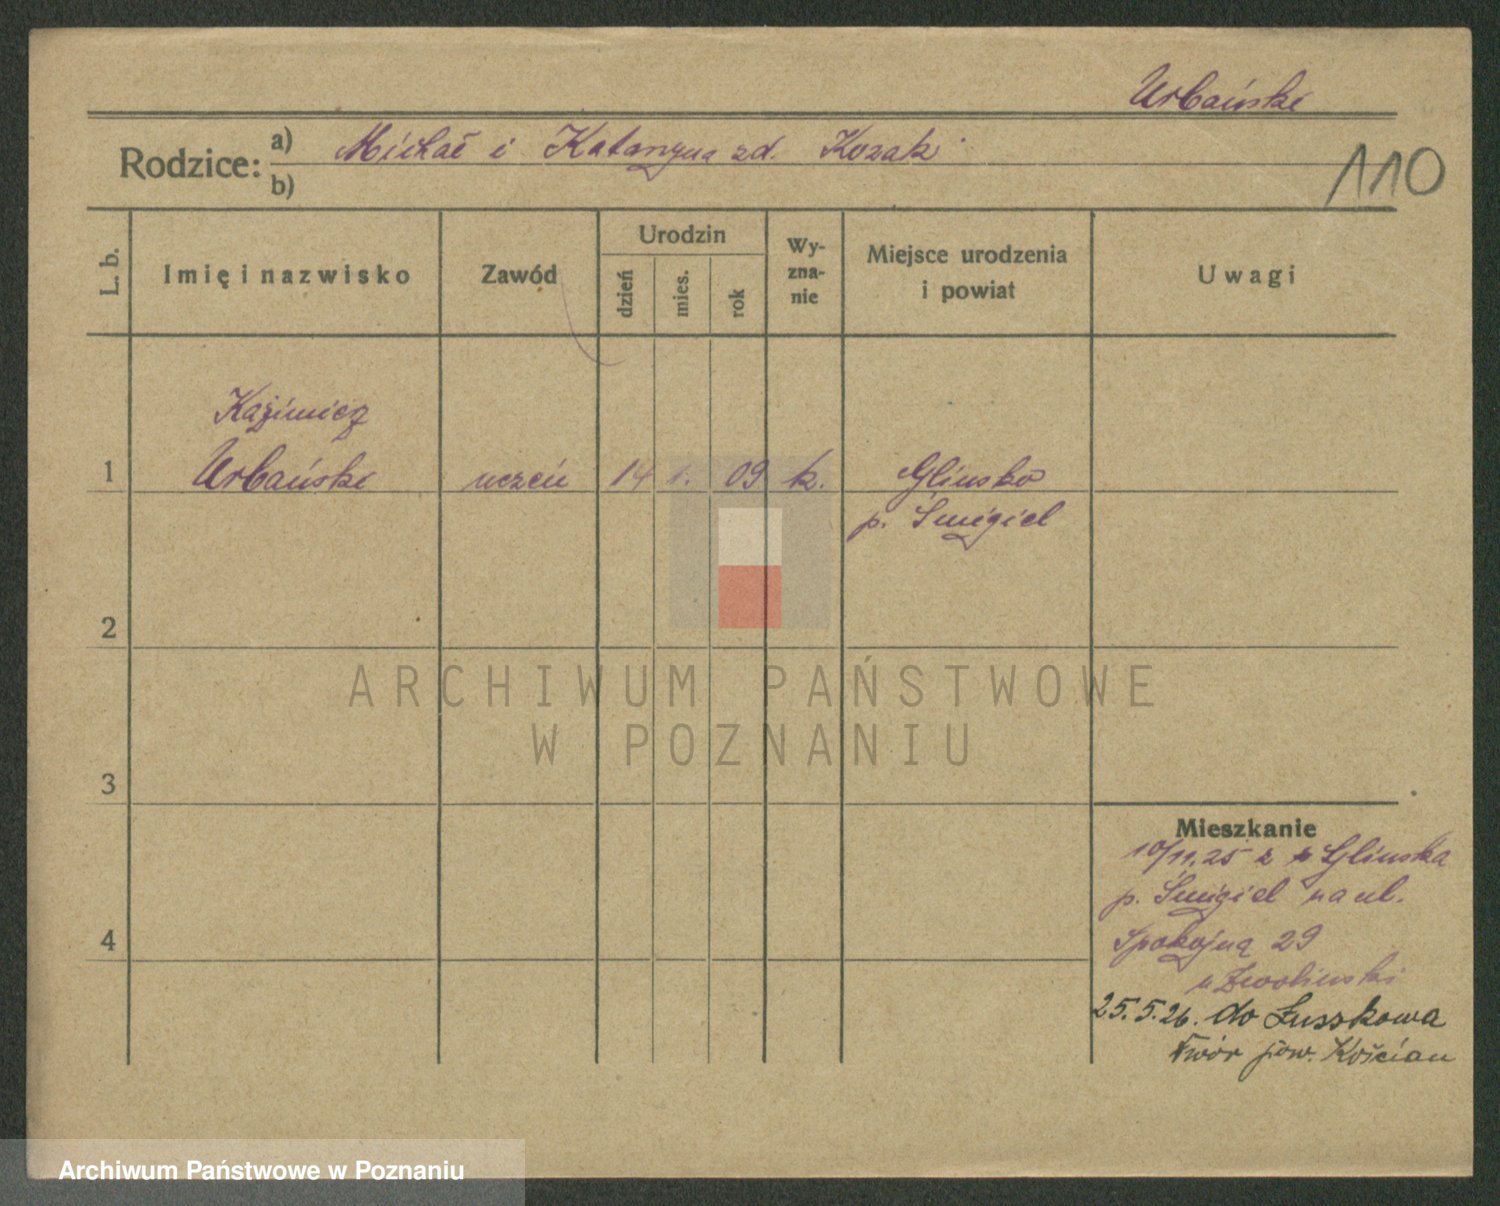 Urbański
Rodzice: a) Michał i Katarzyna zd. Kozak
b)
110
L. b.
Imię i nazwisko
Zawód
Urodzin
dzień
mies.
rok
Wy-
zna-
nie
Miejsce urodzenia
i powiat
Uwagi
Kazimierz
1 Urbański uczeń 14 1. 09 k. Glińsko
p. Śmigiel
2
3
4
Mieszkanie
10/11.25 z Glińska
p. Śmigiel na ul.
Spokojną 29
u Zwoliński
25.5.26. do
dwór pow. Kościan
ARCHIWUM PAŃSTWOWE
W POZNANIU
Archiwum Państwowe w Poznaniu